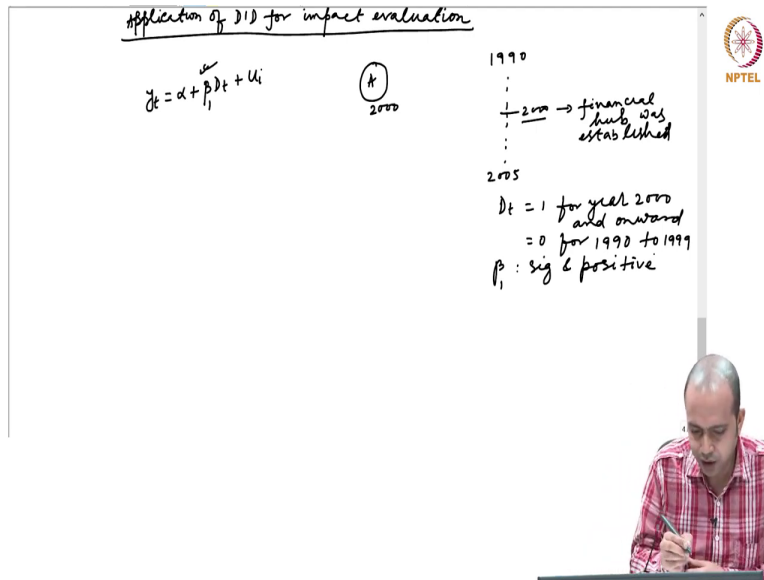 Application of DID for impact evaluation
yt = α + β1 Dt + Ui
A
2000
1990
2000 → financial hub was established
2005
Dt = 1 for year 2000 and onward
= 0 for 1990 to 1999
β1 : sig & positive
NPTEL